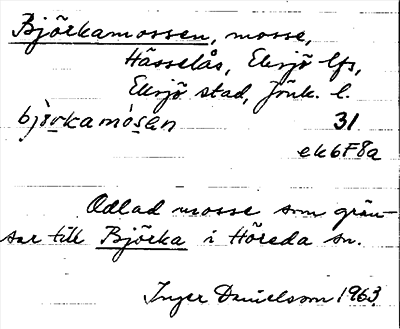 Björkamossen, mosse,
Hässelås, Eksjö lfs,
Eksjö stad, Jönk. l.
björkamòsen 31
ek6F8a
Odlad mosse som grän-
sar till Björka i Höreda sn.
Inger Danielsson 1963